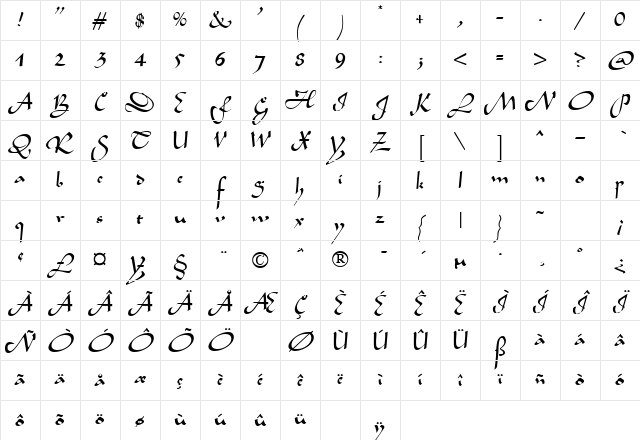 ! " # $ % & ' ( ) * + , - . / 0
1 2 3 4 5 6 7 8 9 : ; < = > ? @
A B C D E F G H I J K L M N O P
Q R S T U V W X Y Z [ \ ] ^ _ `
a b c d e f g h i j k l m n o p
q r s t u v w x y z { | } ~ ¡
¢ £ ¤ ¥ § ¨ © ª ® ¯ ´ µ · ¸ º ¿
À Á Â Ã Ä Å Æ Ç È É Ê Ë Ì Í Î Ï
Ñ Ò Ó Ô Õ Ö Ø Ù Ú Û Ü ß à á â
ã ä å æ ç è é ê ë ì í î ï ñ ò ó
ô õ ö ø ù ú û ü ÿ